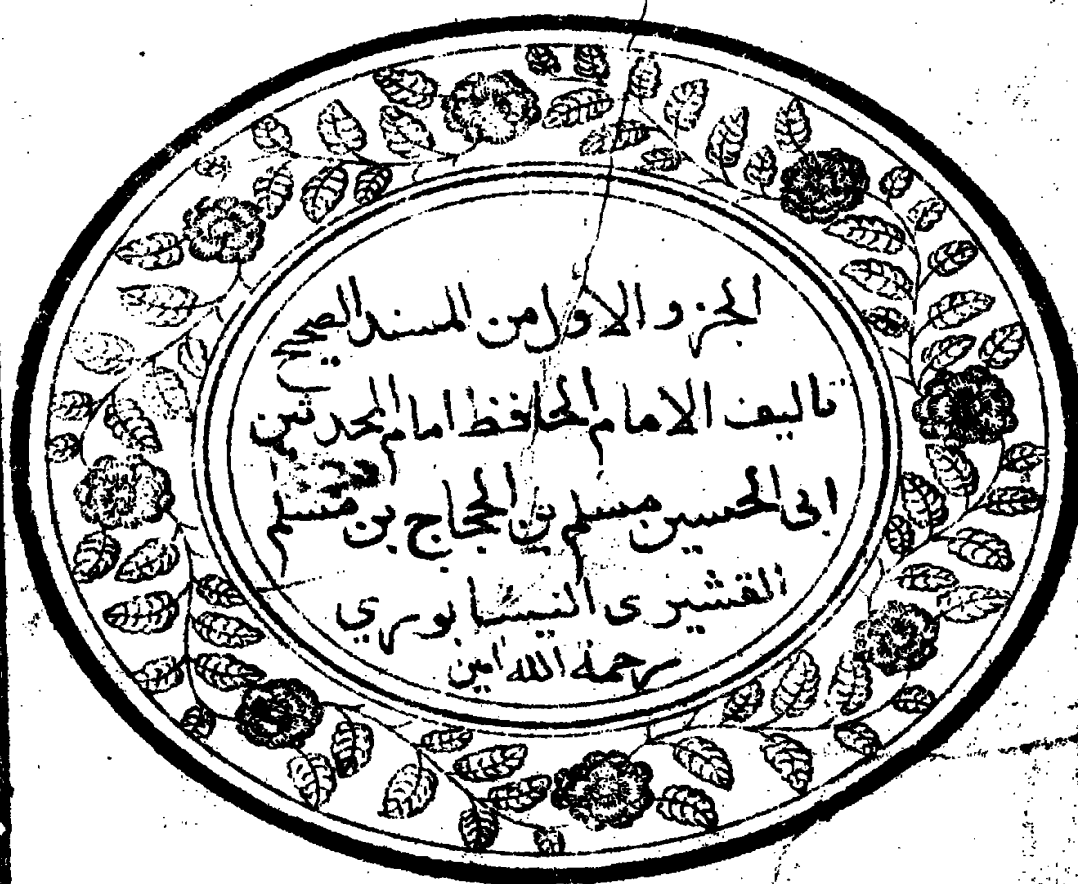 الجزو الاول من المسند الصحيح
تاليف الامام الحافظ امام المحدثين
ابى الحسين مسلم بن الحجاج بن مسلم
القشيرى النيسابوري
رحمة الله امين